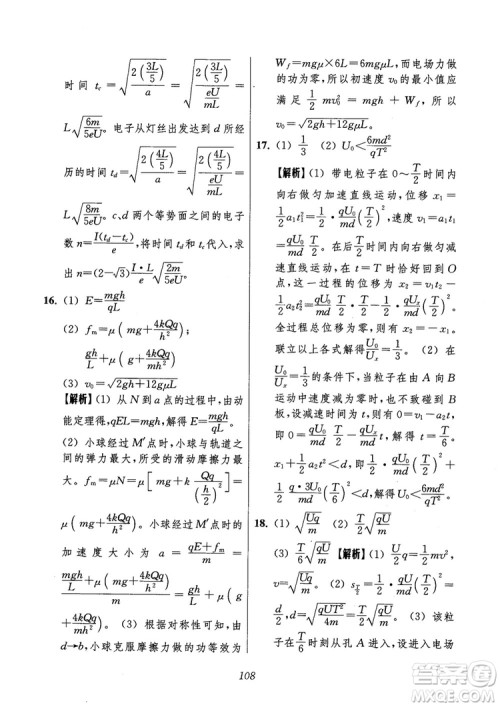 时间 t_c = √(2(3L/5)/a) = √(2(3L/5)/(eU/mL)) =
L√(6m/5eU). 电子从灯丝出发到 d 所经
历的时间 t_d = √(2(4L/5)/a) = √(2(4L/5)/(eU/mL)) =
L√(8m/5eU). c、d 两个等势面之间的电子
数 n = I(t_d − t_c)/e, 将时间 t_d 和 t_c 代入, 得
出: n = (2 − √3) I·L/e √(2m/5eU)
16. (1) E = mgh/qL
(2) f_m = μ(mg + 4kQq/h²);
gh/L + μ(g + 4kQq/mh²)
(3) v₀ = √(2gh + 12gμL)
【解析】(1) 从 N 到 a 点的过程, 由动
能定理得, qEL = mgh, 解得 E = mgh/qL.
(2) 小球经过 M′点时, 小球与轨道之
间的弹力最大, 所受的滑动摩擦力最
大. f_m = μN = μ[mg + kQq/(h/2)²] =
μ(mg + 4kQq/h²) 小球经过 M′点时的
加速度大小为 a = (qE + f_m)/m =
gh/L + μ(g + 4kQq/mh²). (3) 根据对称性可知, 由
d→b, 小球克服摩擦力的功等效为
W_f = mgμ×6L = 6mgμL, 而电场力做
的功为零, 初速度 v₀ 的最小值应
满足 ½mv₀² = mgh + W_f. 所以
v₀ = √(2gh + 12gμL).
17. (1) 1/3 (2) U₀ < 6md²/qT²
【解析】(1) 带电粒子在 0～T/2 时间
内向右做匀加速直线运动, 位移 x₁
= ½a₁t₁² = qU₀/md (T/2)², 速度 v₁ = a₁t₁
= qU₀/md T/2. 在后半程时间内向右做匀减
速直线运动, 在 t = T 时又回到 O
点, 这一过程的位移 x₂ = v₁t₂ −
½a₂t₂² = qU₀/md T/2 · T/2 − ½ qUₓ/md (T/2)².
全过程总位移为零, 得 x₁ + x₂ = 0.
联立以上各式解得: U₀/Uₓ = 1/3. (2) 根据
U₀/Uₓ = 1/3 条件, 当粒子由 A 向 B
运动中速度减为零时, 粒子不能碰到 B
板, 设减速时间为 t, 则 0 = v₁ − a₂t,
即 0 = qU₀/md T/2 − qUₓ/md t. 解得 t = T/6.
x₁ + v₁t − ½a₂t² < d, 即 ½ qU₀/md (T/2)²
+ ½ · q·3U₀/md (T/6)² < d, 解得 U₀ < 6md²/qT²
18. (1) √(Uq/m) (2) T/2 √(qU/m)
(3) T/6 √(qU/m) 【解析】(1) U/2 q = ½mv²,
v = √(Uq/m). (2) s_{T/2} = ½ qU/md (T/2)² =
d/2, d = √(qUT²/4m) = T/2 √(qU/m). (3) 设该粒
子在 T/3 时刻从孔 A 进入, 进入电场
108
答案圈